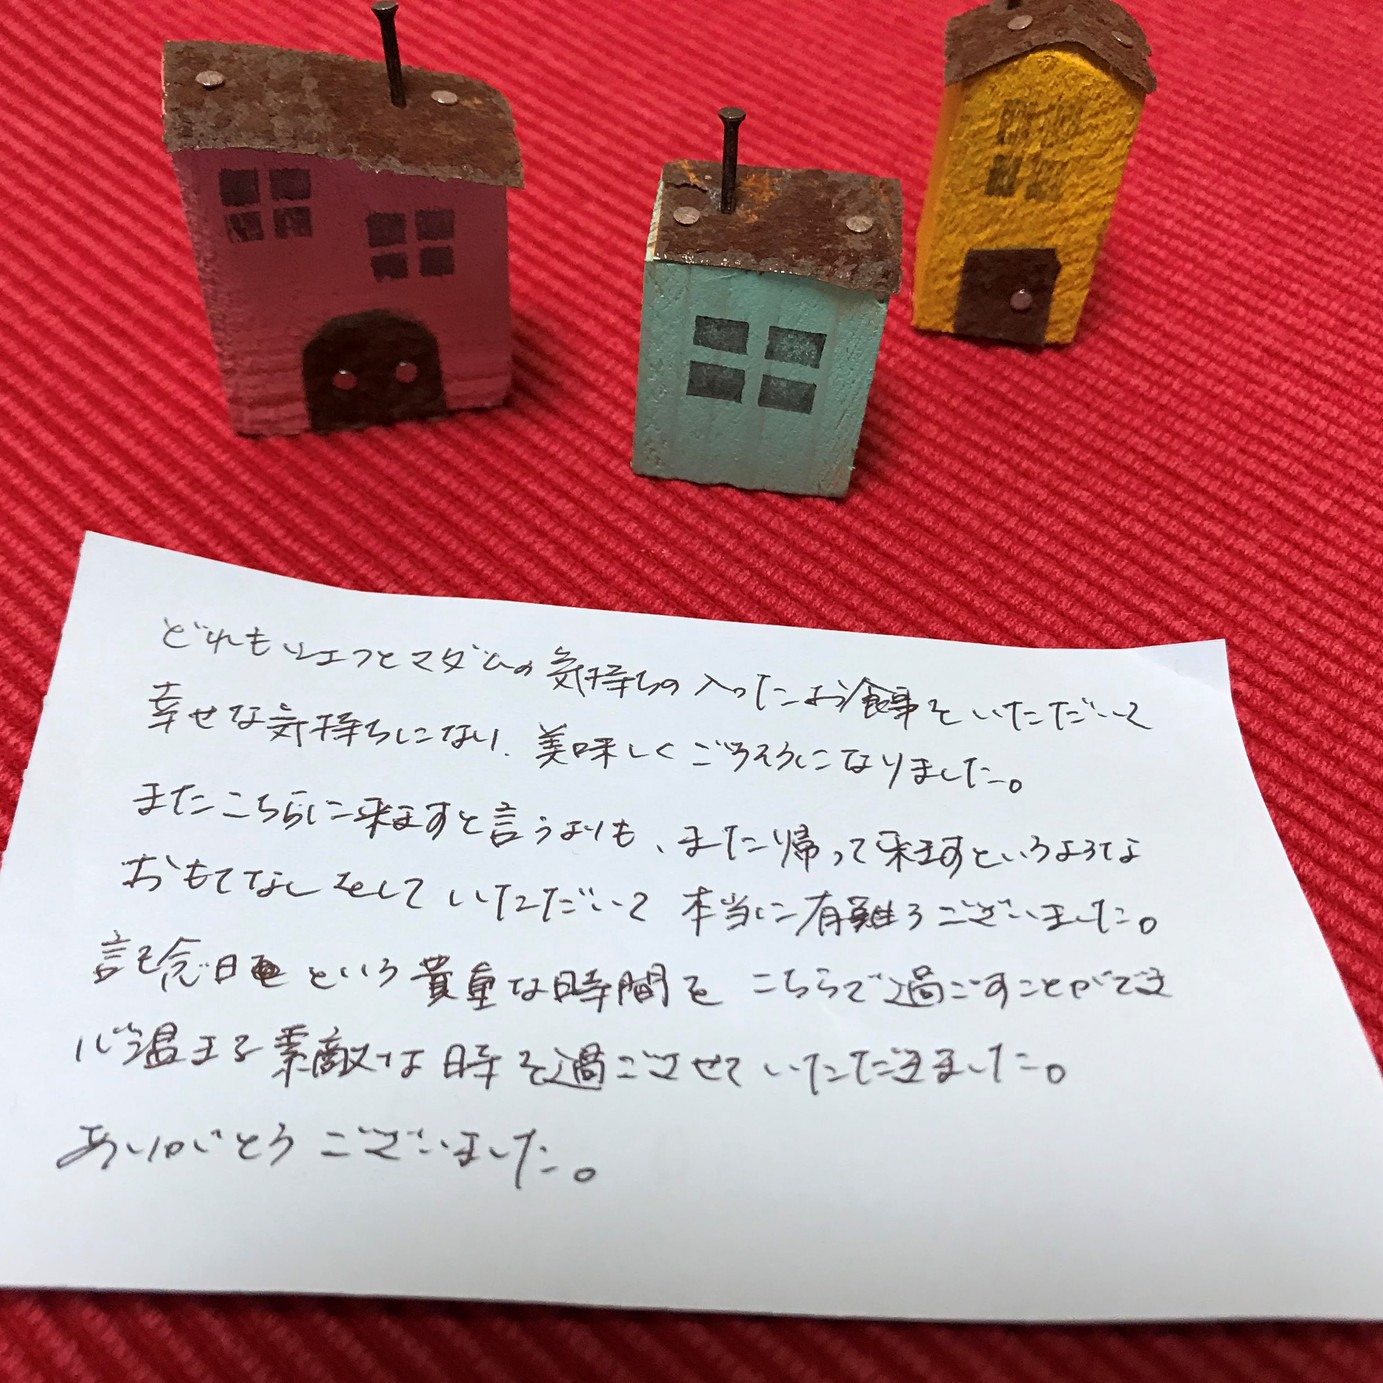 どれもシェフとマダムの気持ちの入ったお食事をいただいて
幸せな気持ちになり、美味しくごちそうになりました。
またこちらに来ますと言うよりも、また帰って来ますというような
おもてなしをしていただいて 本当に有難うございました。
記念日という貴重な時間を こちらで過ごすことができ
心温まる素敵な時を過ごさせていただきました。
ありがとうございました。